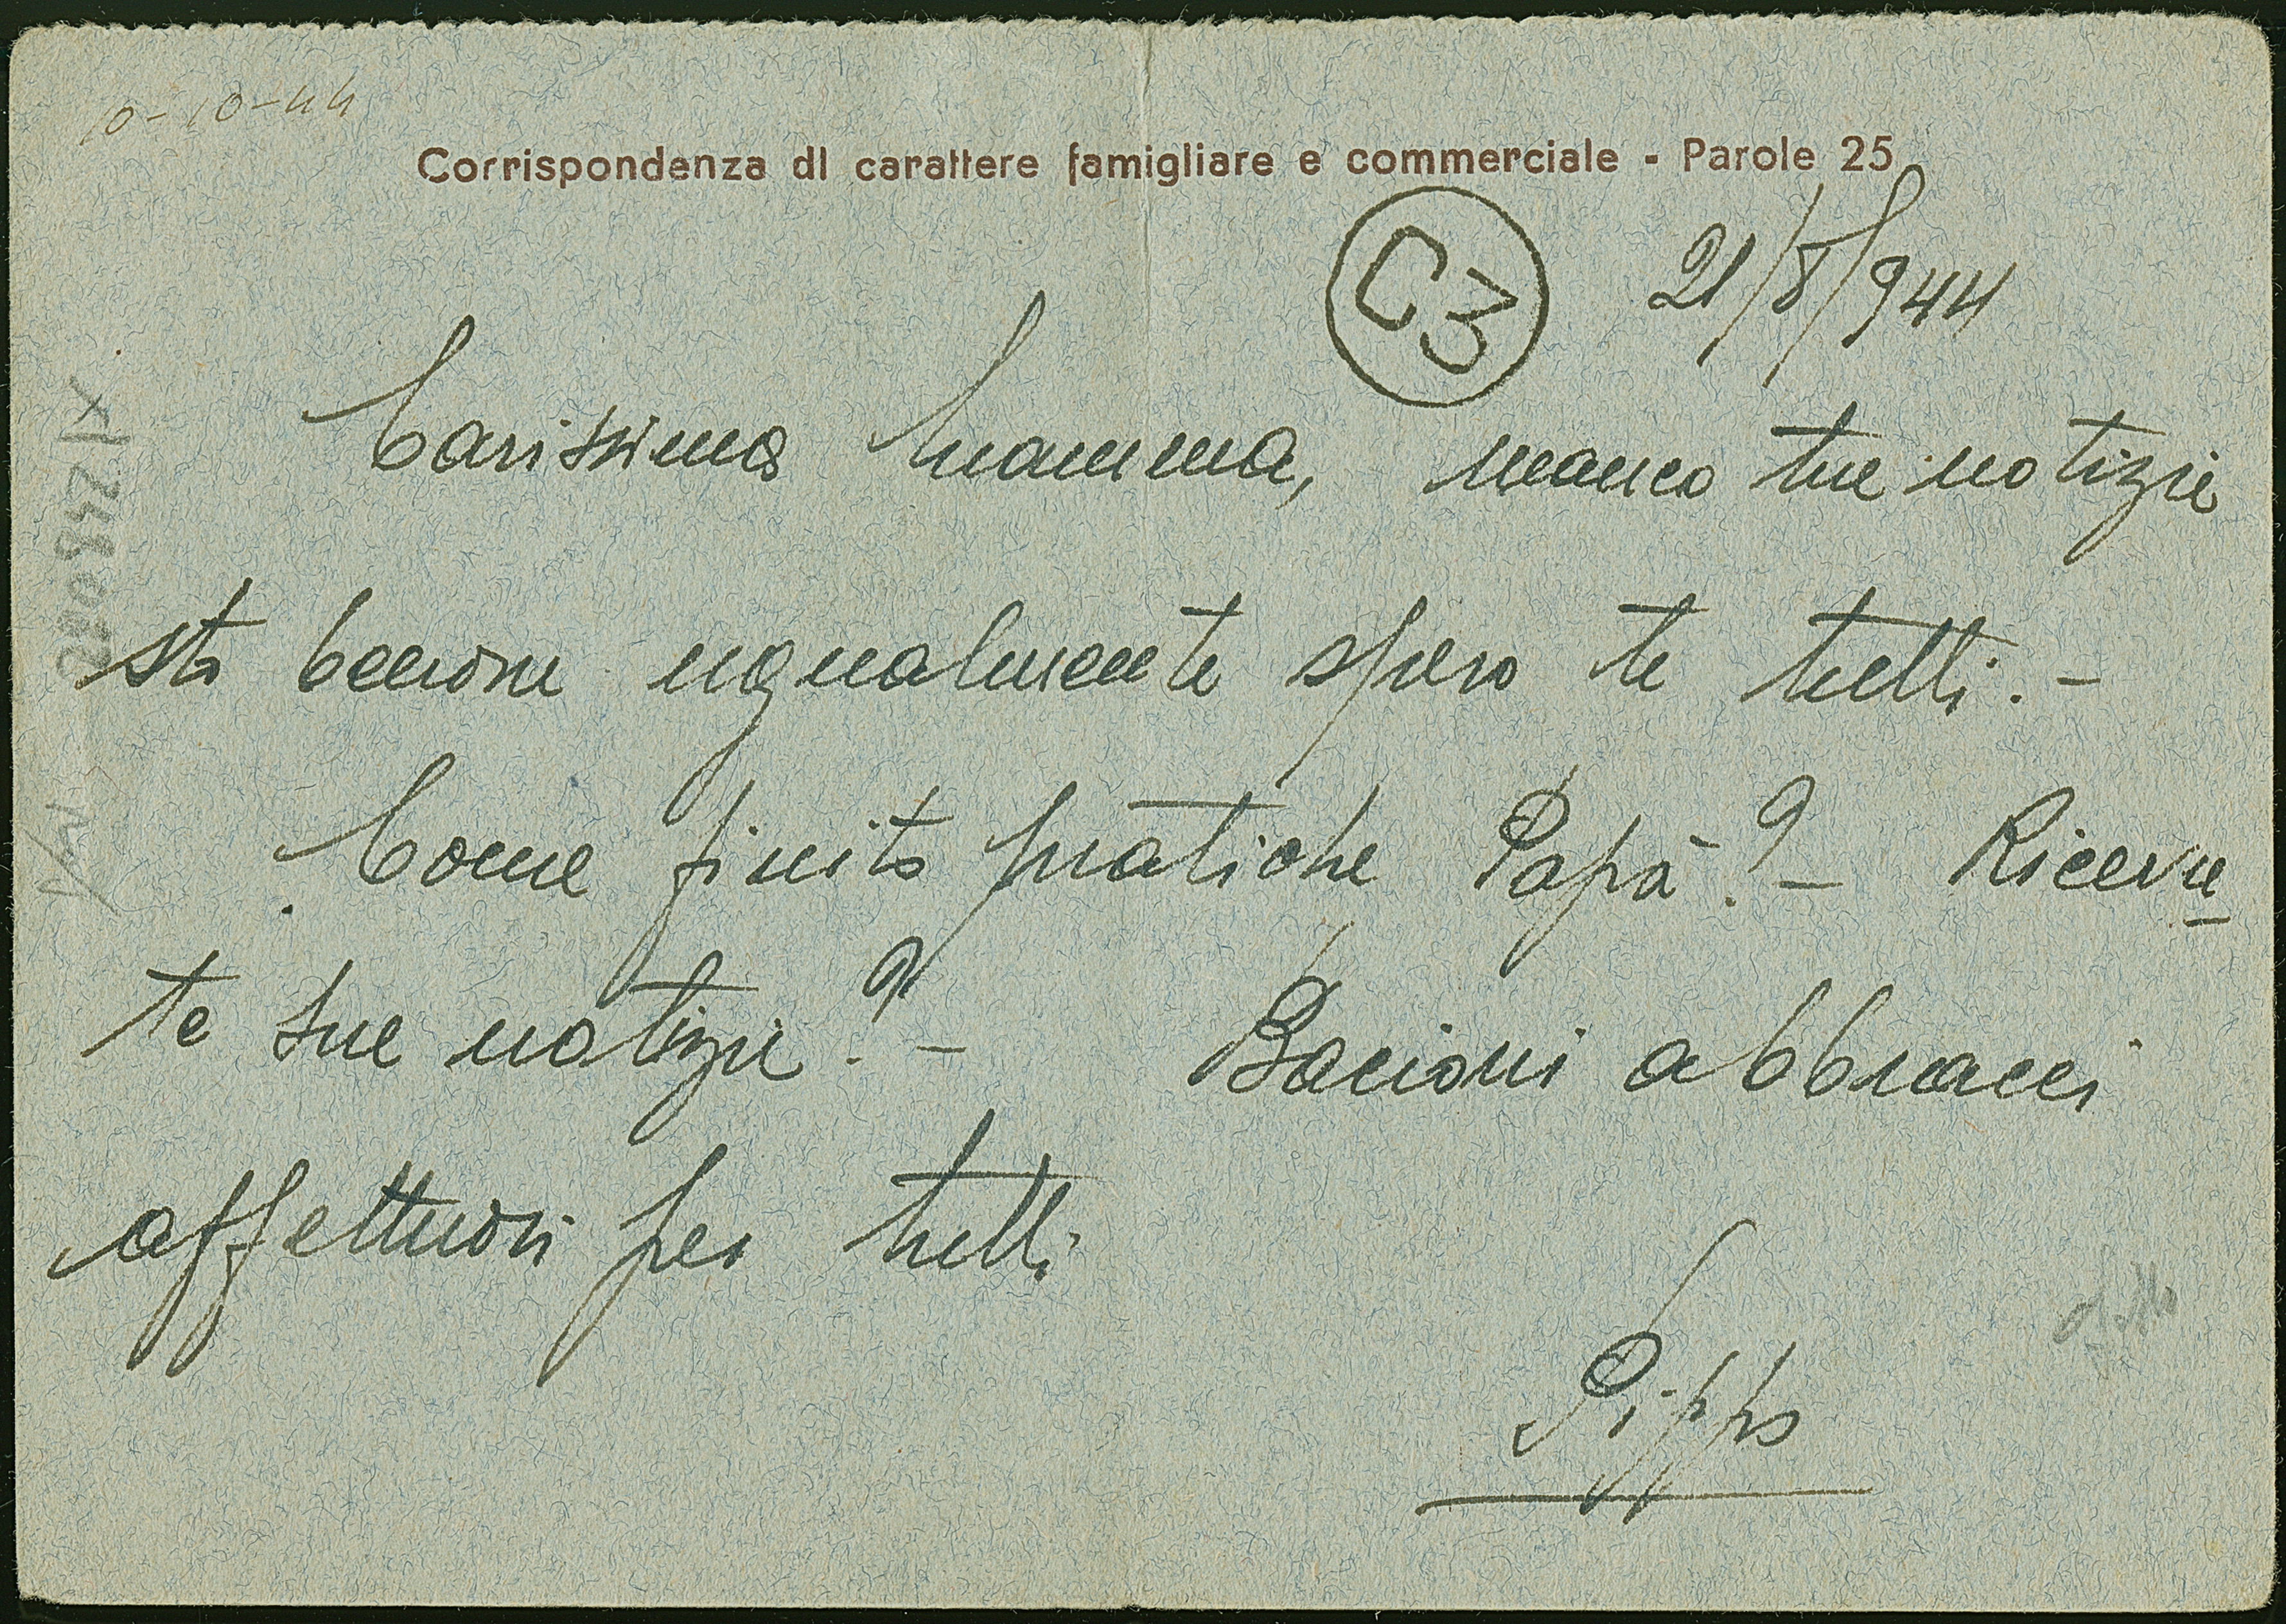 10-10-44
Corrispondenza di carattere famigliare e commerciale - Parole 25
C3
21/8/944
Carissima mamma, manco tue notizie
sto benone ugualmente spero te tutti.-
Come finito pratiche Papà?- Ricevu
te sue notizie?- Bacioni abbracci
affettuosi per tutti
Pippo